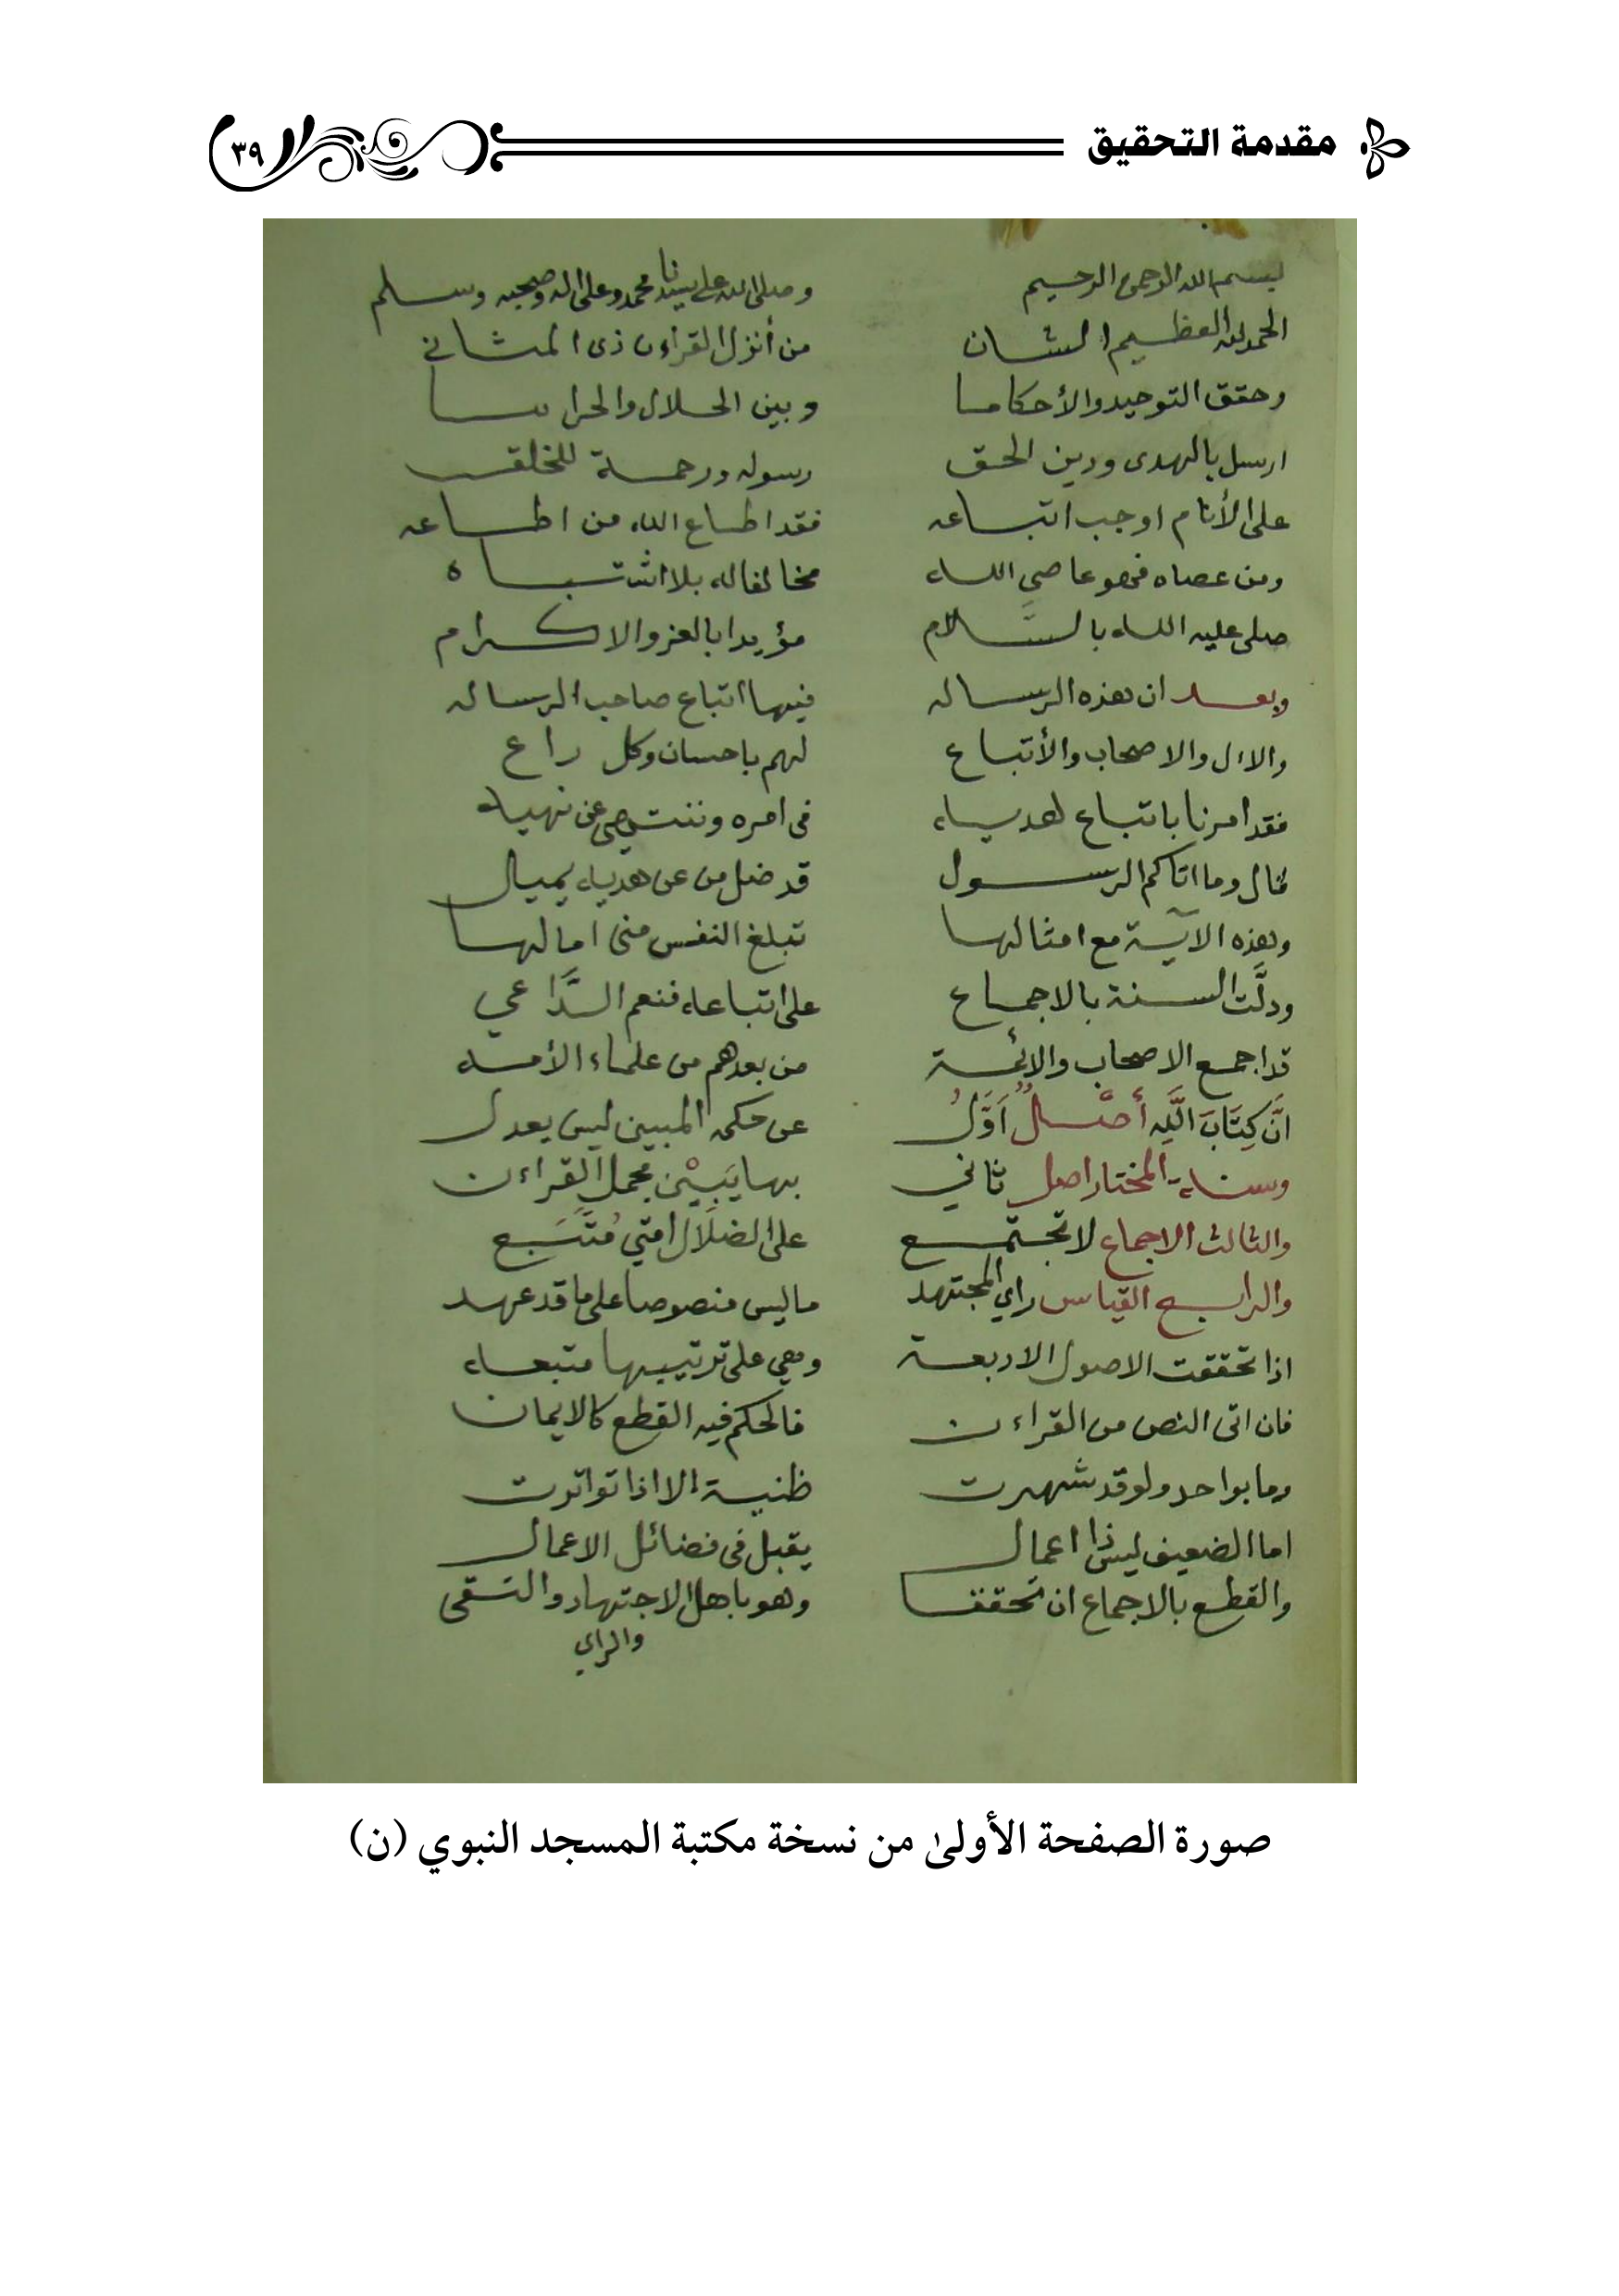 مقدمة التحقيق ٣٩
بسم الله الرحمن الرحيم وصلى الله على سيدنا محمد وعلى اله وصحبه وسلم
الحمد لله العظيم الشان من أنزل القراءن ذى المثاني
وحقق التوحيد والأحكاما وبين الحلال والحراما
ارسل بالهدى ودين الحق رسوله ورحمة للخلق
على الأنام اوجب اتباعه فقد اطاع الله من اطاعه
ومن عصاه فهو عاصي الله مخالفا له بلا اشتباه
صلى عليه الله بالسَّلام مؤيدا بالعز والاكرام
وبعد ان هذه الرساله فيها اتباع صاحب الرساله
والاٰل والاصحاب والأتباع لهم باحسان وكل راع
فقد امرنا باتباع هديه فى امره وننتهي عن نهيه
قال وما اتاكم الرسول قد ضل من عن هديه يميل
وهذه الآية مع امثالها تبلغ النفس منى امالها
ودلَّت السنة بالاجماع على اتباعه فنعم الدَّاعي
قد اجمع الاصحاب والائمة من بعدهم من علماء الأمه
انَّ كِتَابَ اللَّهِ أصْلٌ اَوَّلُ عن حكمه المبين ليس يعدل
وسنة المختار اصل ثاني بها يَبِيْن مجمل القراءن
والثالث الاجماع لا تجتمع على الضلَال امتي مُتَّبَع
والرابع القياس راي المجتهد ما ليس منصوصا على ما قد عهد
اذا تحققت الاصول الاربعة وهي على ترتيبها متبعه
فان اتى النص من القراءن فالحكم فيه القطع كالايمان
وما بواحد ولو قد شهرت ظنية الا اذا تواترت
اما الضعيف ليس ذا اعمال يقبل فى فضائل الاعمال
والقطع بالاجماع ان تحققا وهو باهل الاجتهاد والتقى
والراي
صورة الصفحة الأولىٰ من نسخة مكتبة المسجد النبوي (ن)